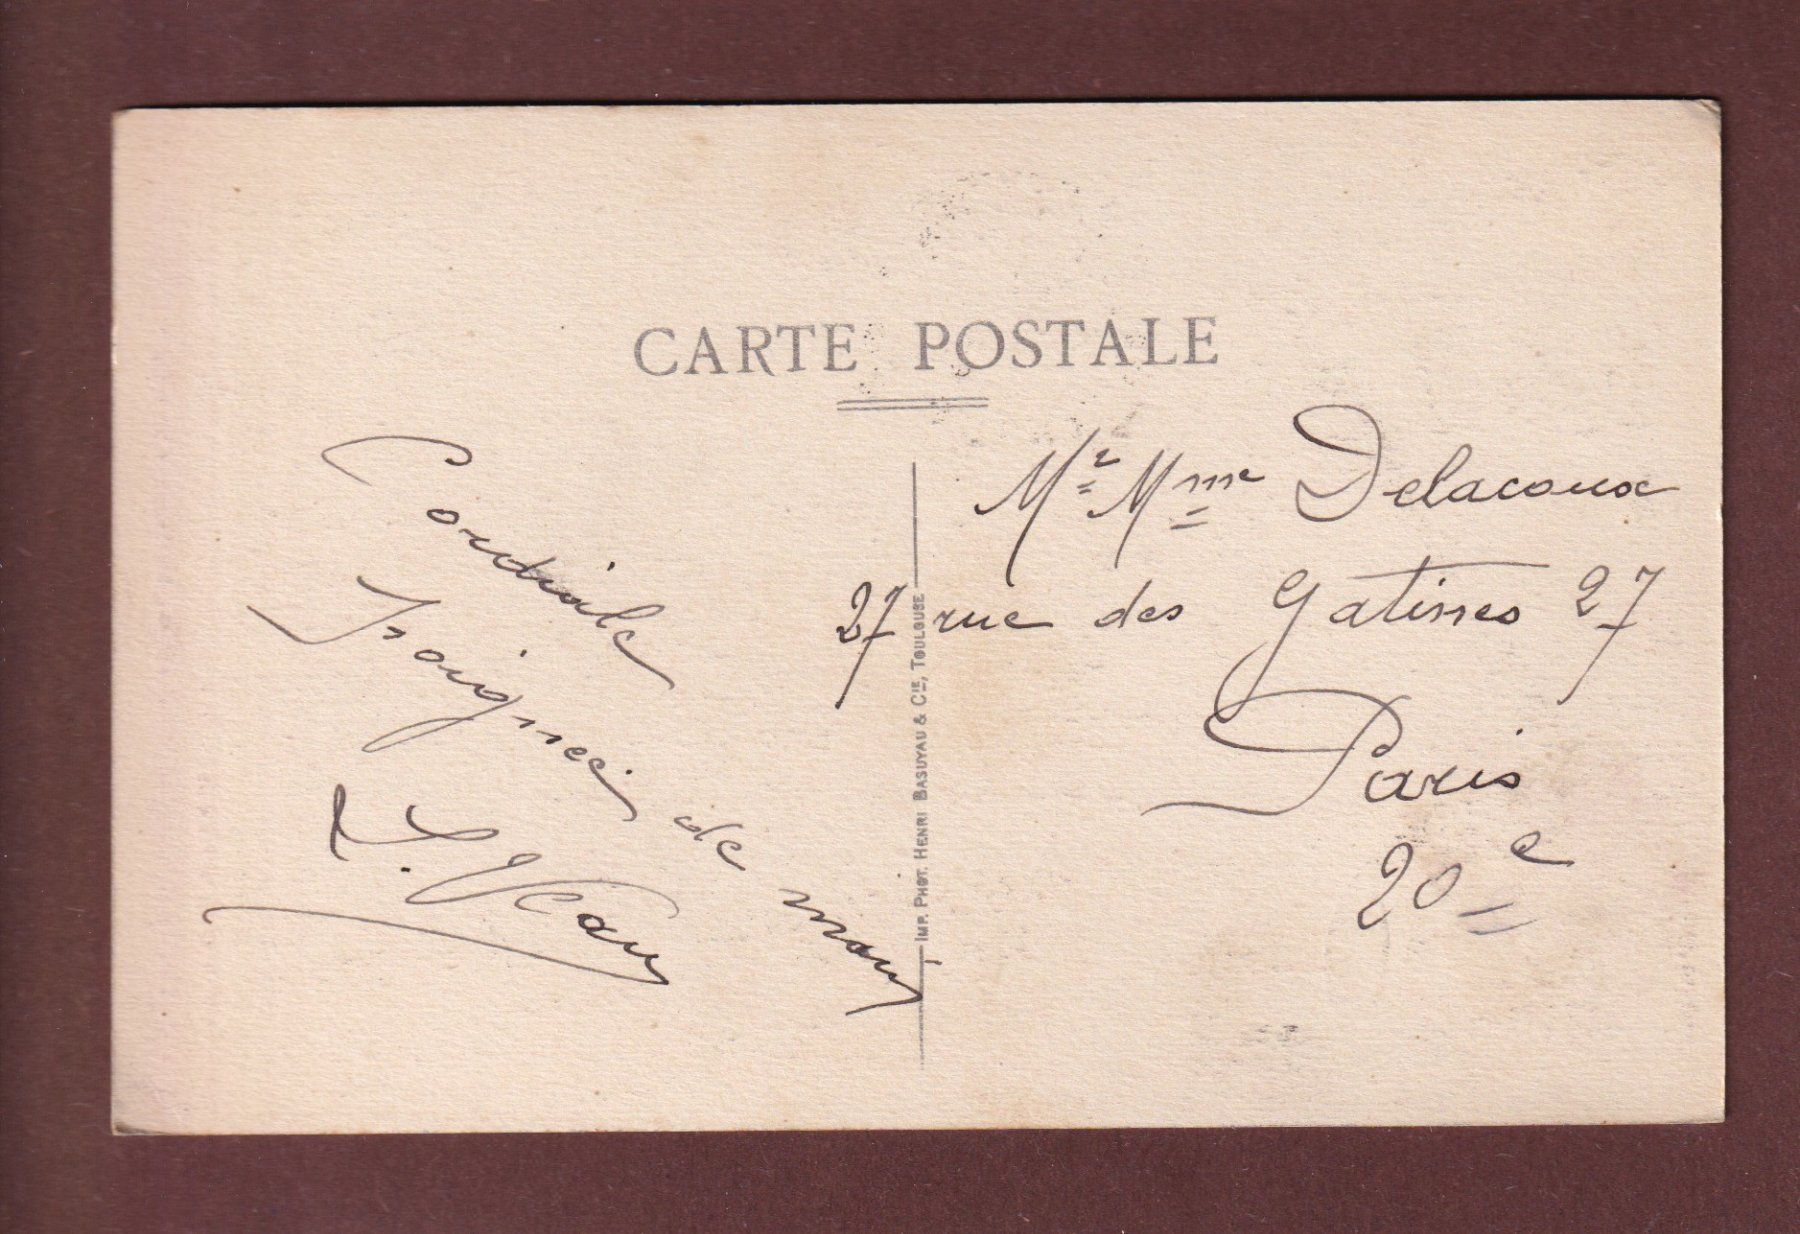 CARTE POSTALE
Cordiale
Poignée de main
Mr Mme Delacoux
27 rue des Gatines 27
Paris
20e
IMP. PHOT. HENRI BASUYAU & CIE, TOULOUSE